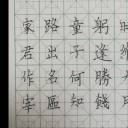 家路童躬時
君出子逢
作名何勝
宰區知餞